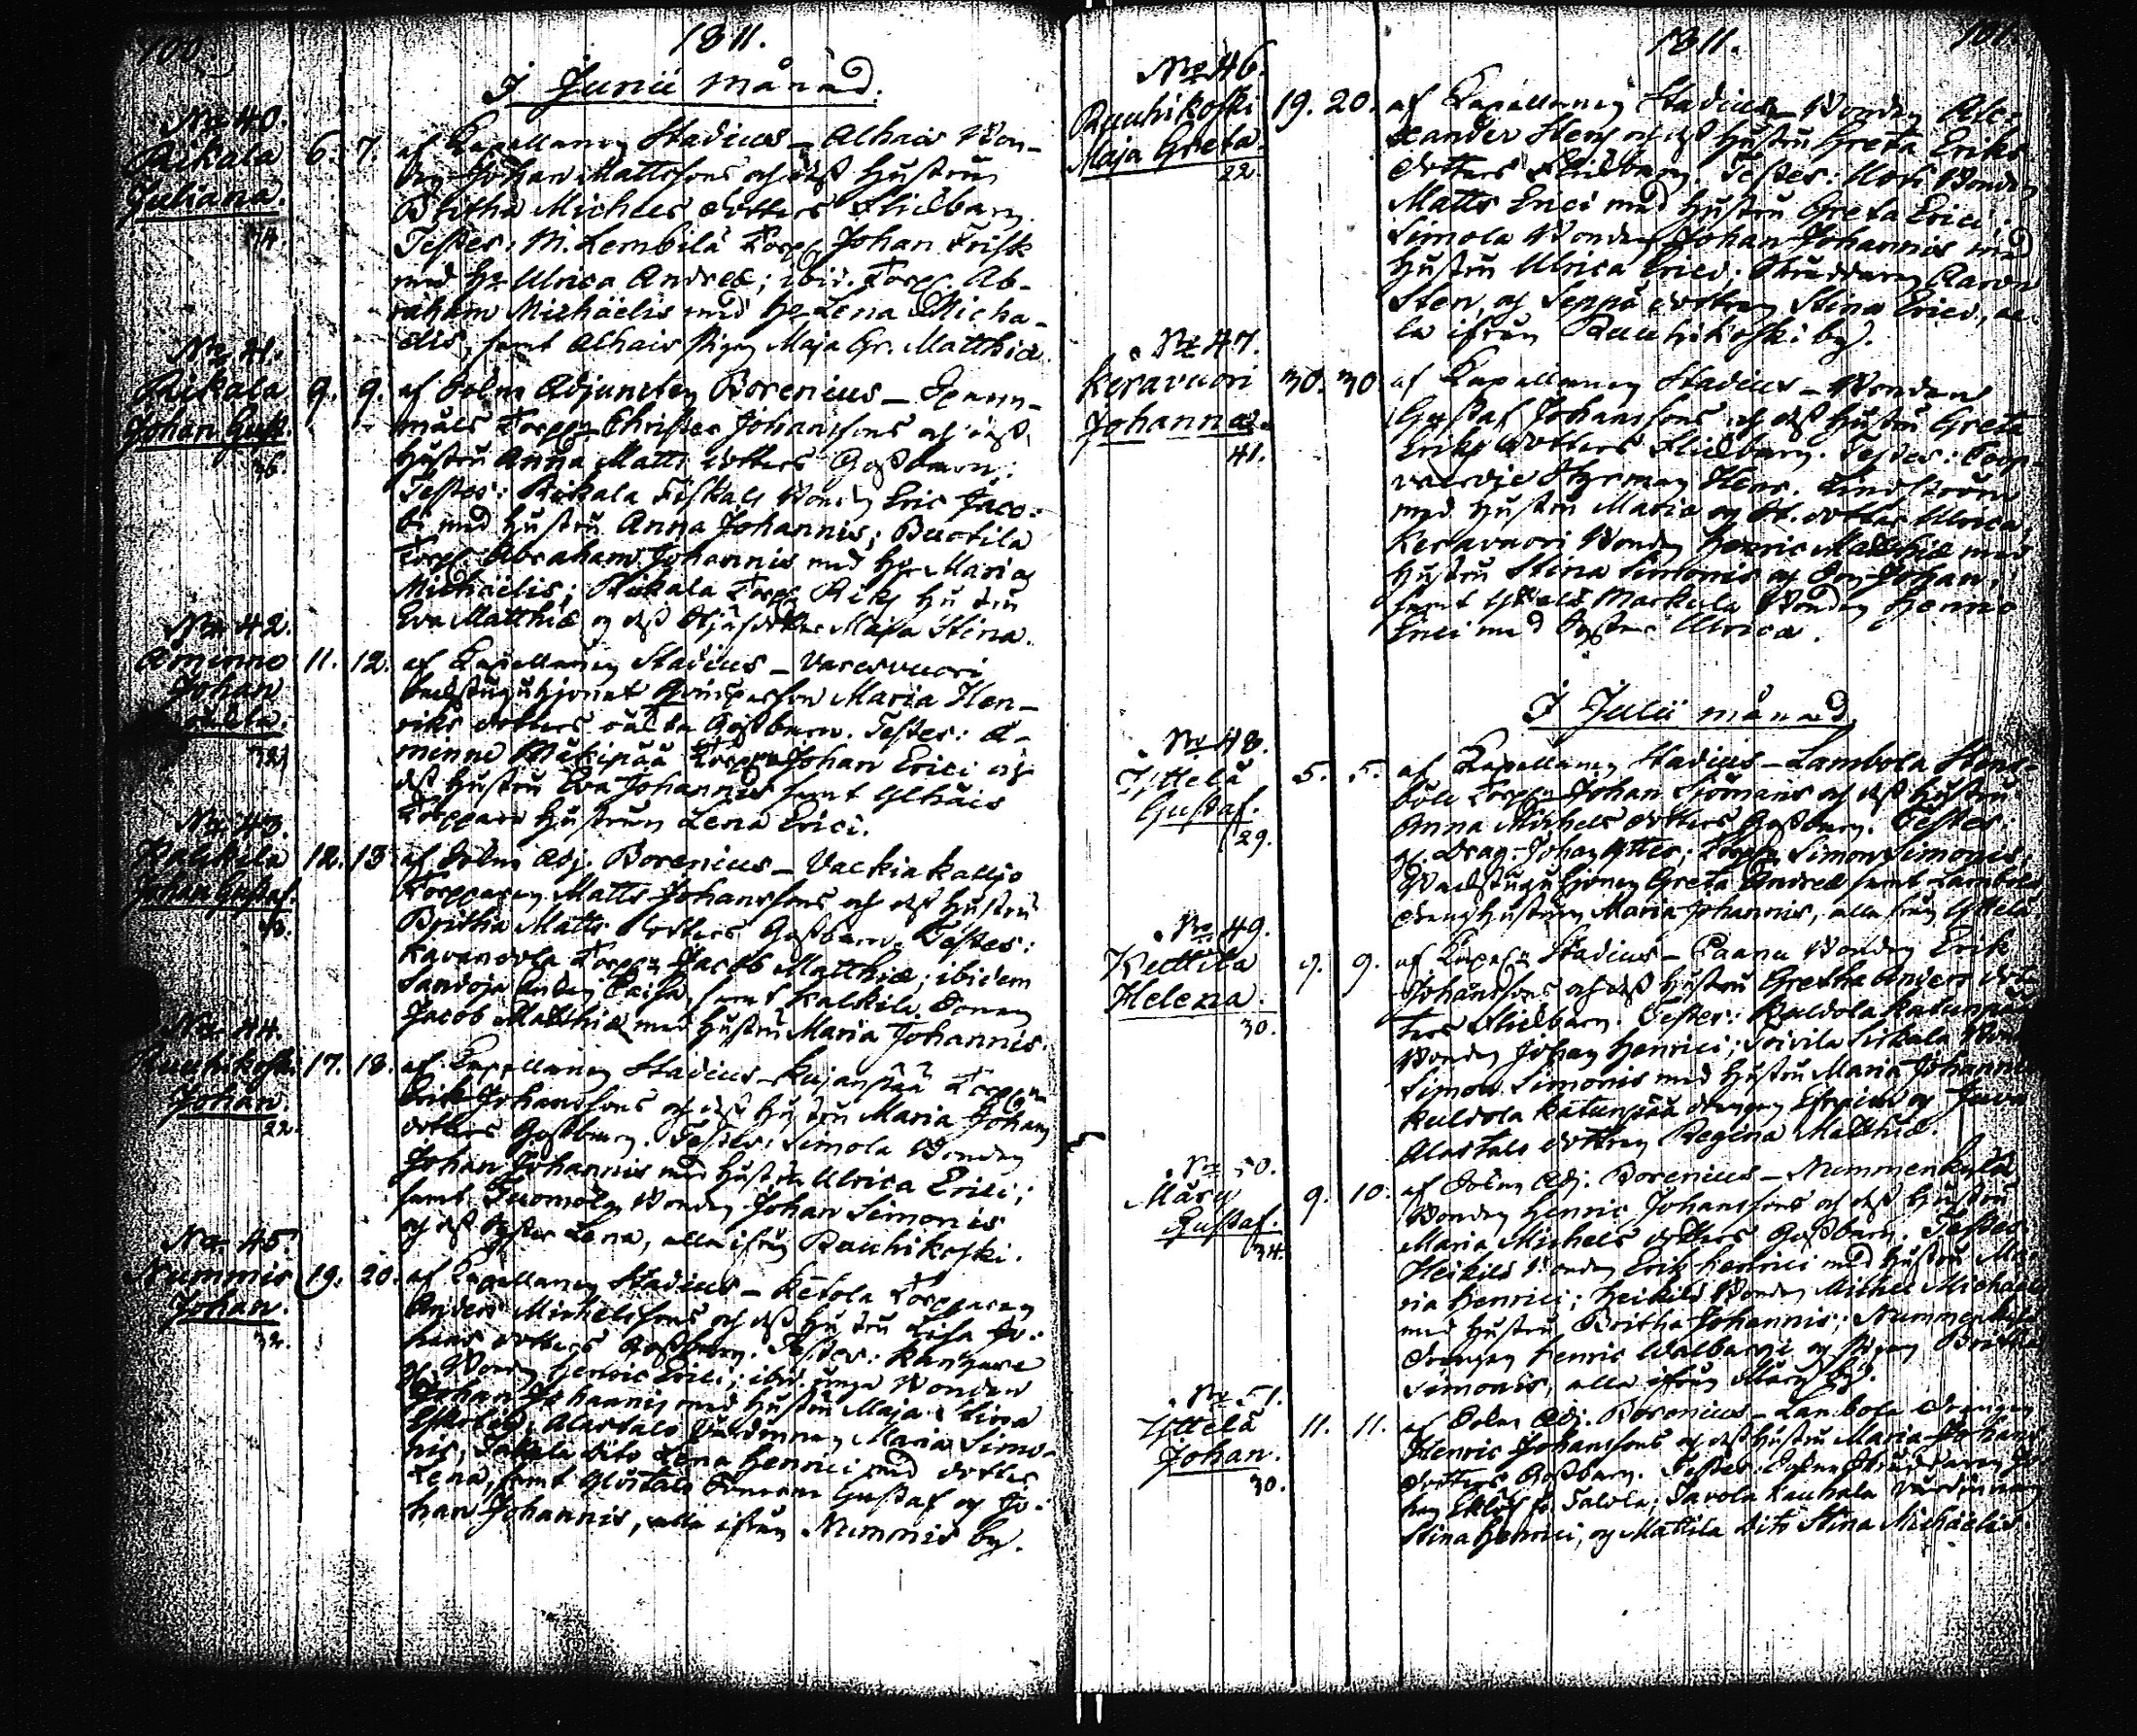 100.
1811.
I Junii månad.
No 40.
Rikala
Juliana.
34.
6. 7. af Kapellanen Stadius – Alhais Bon-
den Johan Mattssons och dess Hustru
Britha Michels dotters Flickbarn.
Testes: M. Lembilä Torp. Johan Frisk
med H. Ulrica Andreæ; ibid. Torp. Ab-
raham Michäelis med H. Lena Micha-
elis, samt Alhais Pigan Maja Gr. Matthiæ.
No 41.
Rikala
Johan Gust.
36.
9. 9. af Adjuncten Borenius –
måls Torpn Christer Johanssons och dess
Hustru Anna Matts dotters Gossbarn.
Testes: Rikala Bonden Eric Jaco-
bi med Hustru Anna Johannis;
Torp. Abraham Johannis med H. Maria
Michäelis; Rikala Torp. Hustru
Eva Matthiæ och dess Maja Stina.
No 42.
Amenno
Johan
32.
11. 12. af Kapellanen Stadius – Varesvuori
Maria Hen-
riks dotters oäkta Gossbarn. Testes: A-
menno Mäkipää Torpn Johan Erici och
dess Hustru Eva Johannis samt
Torpare Hustrun Lena Erici.
No 43.
Kalkila
Johan Gustaf.
12. 13. af Adj. Borenius – Vackiakallio
Torparen Matts Johanssons och dess Hustru
Britha Matts dotters Gossbarn. Testes:
Torpn Jacob Matthiæ; ibidem
Caisa, samt Kalkila
Jacob Matthiæ med Hustru Maria Johannis.
No 44.
Rauhikoski
Johan.
22.
17. 18. af Kapellanen Stadius – Kujanpää Torpn
Erik Johanssons och dess Hustru Maria Johans
dotters Gossbarn. Testes: Simola Bonden
Johan Johannis med Hustru Ulrica Erici;
samt Tuomola Bonden Johan Simonis
och dess Syster Lena, alla ifrån Rauhikoski.
No 45.
Nummis
Johan.
32.
19. 20. af Kapellanen Stadius – Ketola Torparen
Anders Michelssons och dess Hustru Lisa Jo-
hans dotters Gossbarn. Testes:
Bonden Henric Erici; ibid. unga Bonden
Johan Johannis med Hustru Maja Stina
Alastalo Värdinnan Maria Simo-
nis, dito Lena Henrici med dotter
Lena, samt Gustaf och Jo-
han Johannis, alla ifrån Nummis by.
1811.
101.
No 46.
Rauhikoski
Maja Greta.
22.
19. 20. af Kapellanen Stadius – Bonden Ale-
xander Stens och dess Hustru Greta Eriks
dotters Flickbarn. Testes: Bonden
Matts Erici med Hustru Greta Erici;
Simola Bonden Johan Johannis med
Hustru Ulrica Erici; Skräddaren Aaron
Sten, och Seppä dottren Stina Erici, al-
la ifrån Rauhikoski by.
No 47.
Keravuori
Johanna.
41.
30. 30. af Kapellanen Stadius – Bonden
Gustaf Johanssons och dess Hustru Greta
Eriks dotters Flickbarn. Testes:
Henr. Lindström
med Hustru Maria och dotter Ulrica,
Keravuori Bonden Henric Matthiæ med
Hustru Stina Simonis och Son Johan,
samt Markula Bonden Henric
Erici med Syster Ulrica.
I Julii månad.
No 48.
Yttelä
Gustaf.
29.
5. 5. af Kapellanen Stadius – Lambola
Torpn Johan Sjömans och dess Hustru
Anna Michels dotters Gossbarn. Testes:
Drag. Johan Simon Simonis;
Greta Andreæ samt
Hustrun Maria Johannis, alla från Yttelä.
No 49.
Kuttila
Helena.
30.
9. 9. af Kapeln Stadius – Paanu Bonden Erik
Johanssons och dess Hustru Gretha Anders dot-
ters Flickbarn. Testes: Kuldola Katunpää
Bonden Johan Henrici;
Simon Simonis med Hustru Maria Johannis
Kuldola Katunpää drengen Efraim och
Alastalo dottren Regina Matthiæ.
No 50.
Märy
Gustaf.
34.
9. 10. af Adj. Borenius – Nummenkylä
Bonden Henric Johanssons och dess Hustru
Maria Michels dotters Gossbarn. Testes:
Heikilä Bonden Erik Henrici med Hustru Ma-
ria Henrici; Heikilä Bonden Michel Michaelis
med Hustru Britha Johannis; Nummenkylä
drengen Henric Walbarg och Pigan Britha
Simonis, alla ifrån Märy by.
No 51.
Yttelä
Johan.
30.
11. 11. af Adj. Borenius – Lambola drengen
Henric Johanssons och dess Hustru Maria Johans
dotters Gossbarn. Testes: Skräddaren Jo-
han Talola; Kauhala Värdinnan
Stina Henrici, och Mattila dito Stina Michäelis.